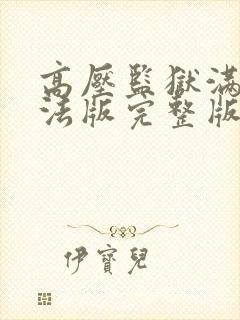 高壓監獄滿
法版完整版
伊寶兒